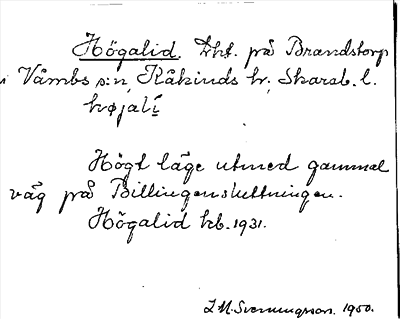 Högalid. Lht. på Brandstorp
i Våmbs s:n, Kåkinds hr, Skarab. l.
højalí
Högt läge utmed gammal
väg på Billingensluttningen.
Högalid kb. 1931.
I.M. Svenningson. 1950.